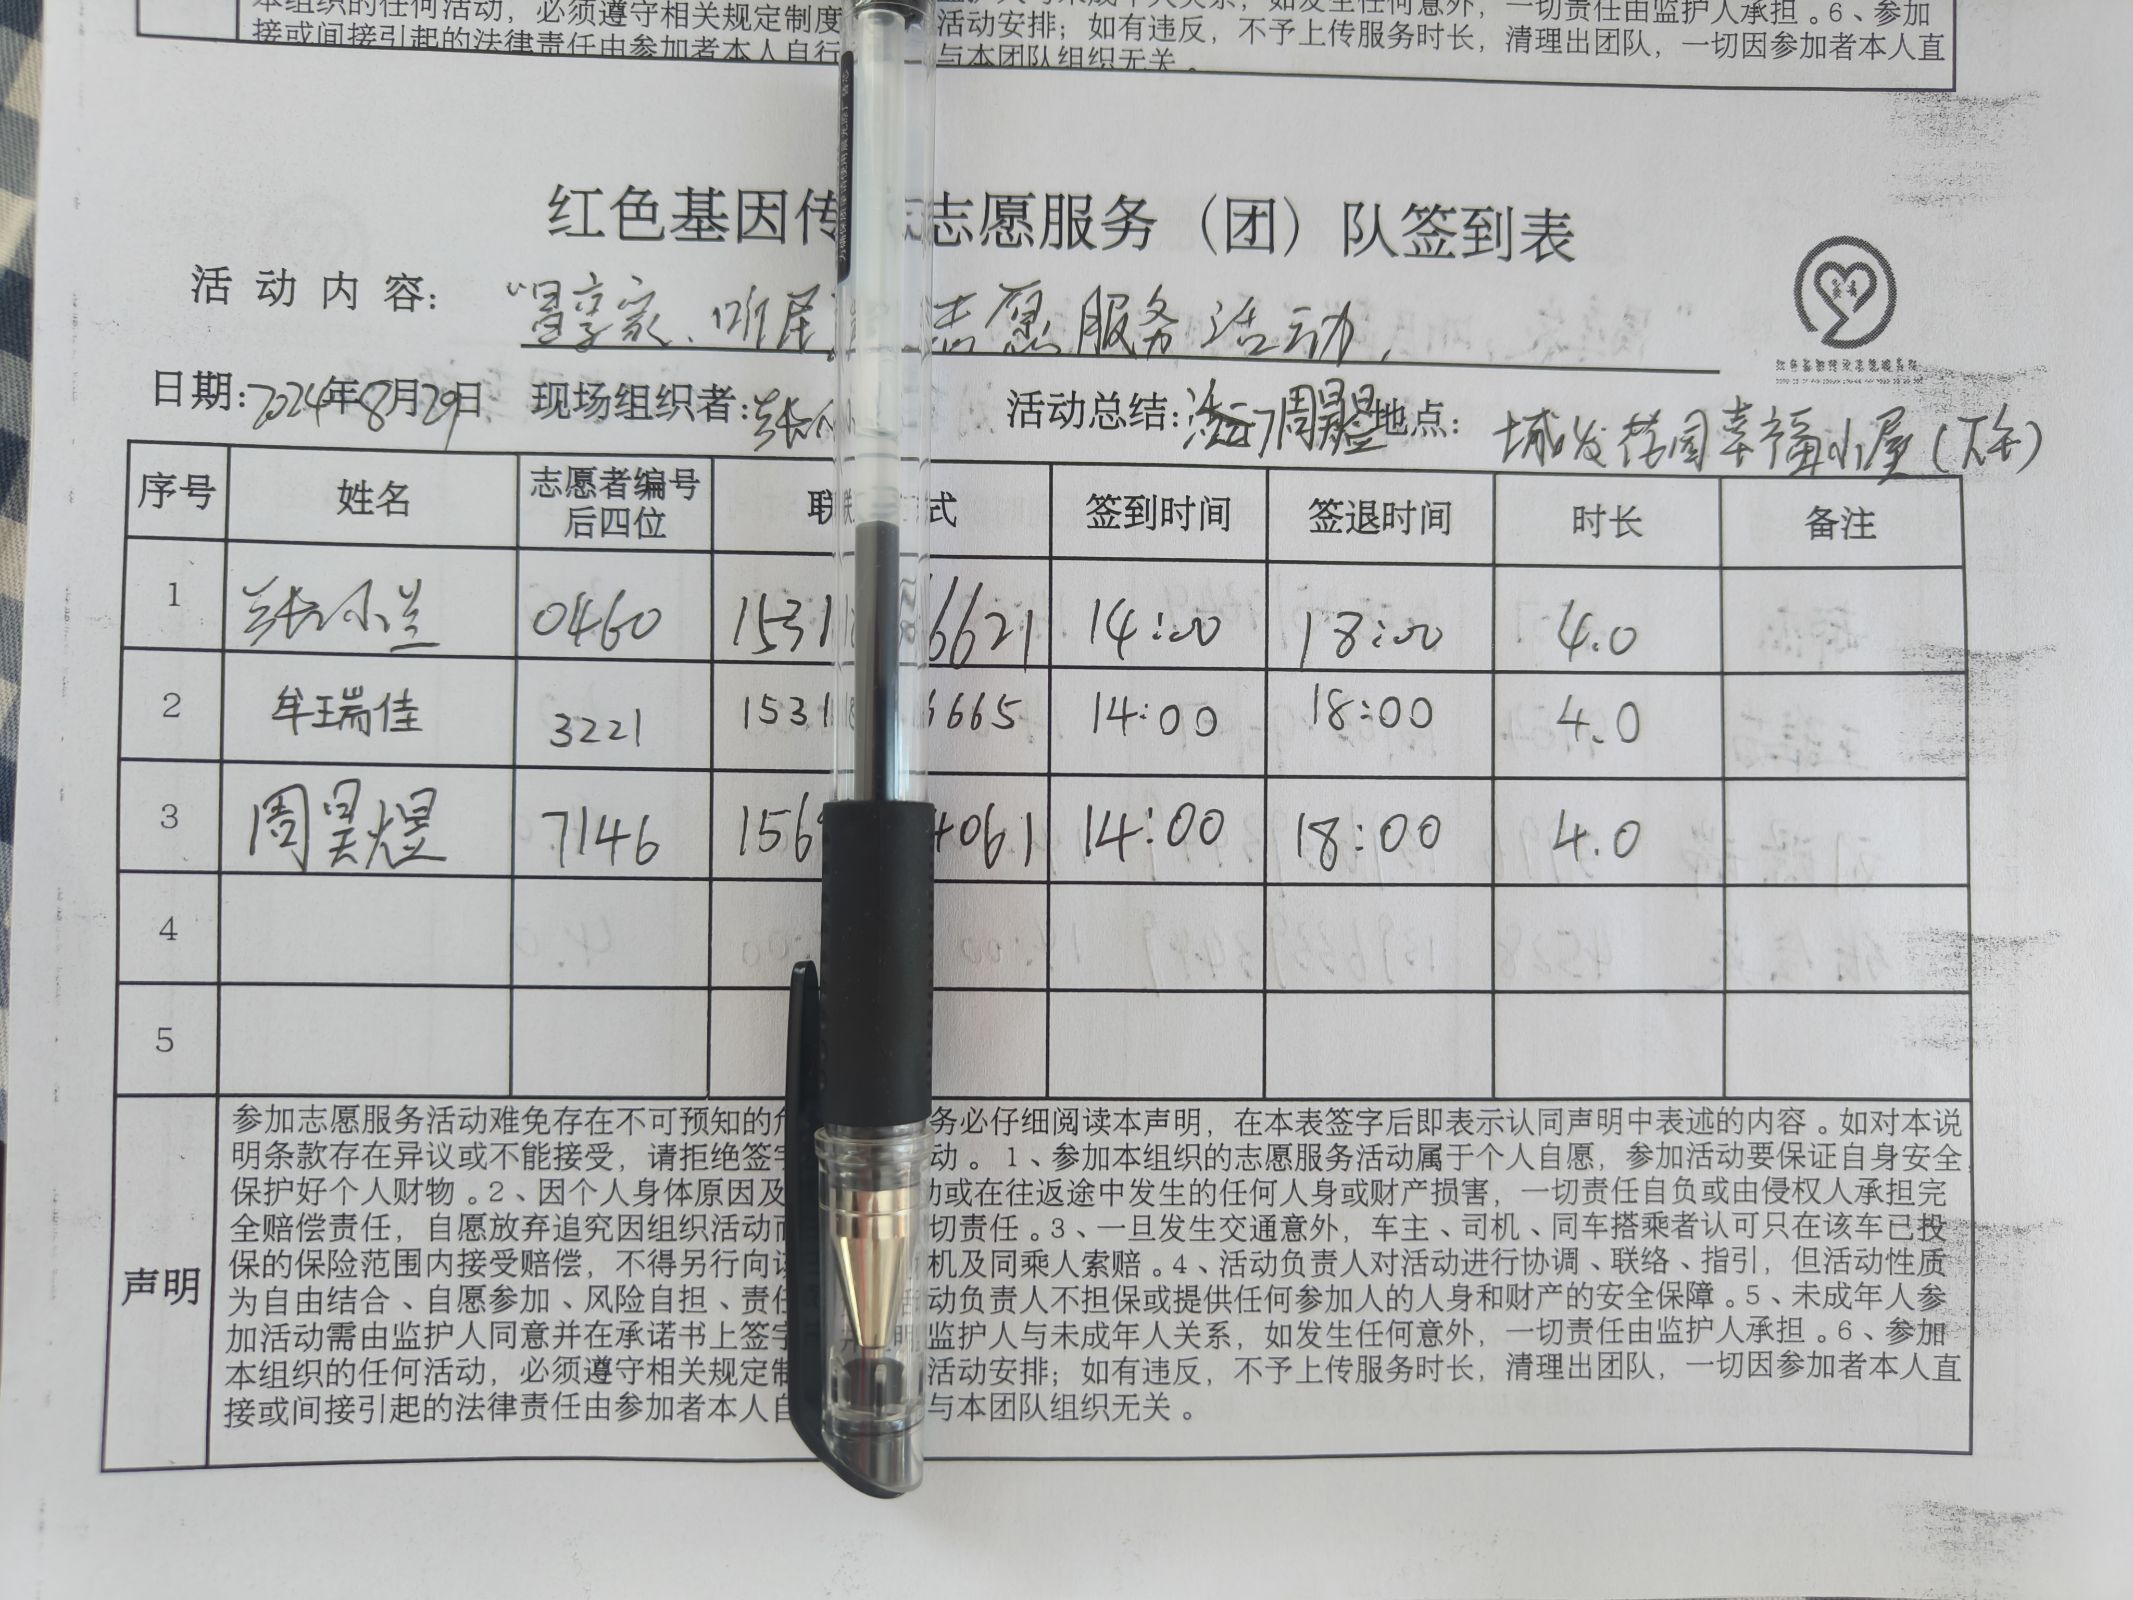 本组织的任何活动，必须遵守相关规定制度 活动安排；如有违反，不予上传服务时长，清理出团队，一切因参加者本人直
接或间接引起的法律责任由参加者本人自行 与本团队组织无关。
红色基因传 志愿服务（团）队签到表
活动内容： 志愿服务活动
日期：2024年8月29日 现场组织者：张小 活动总结： 地点：城发花园幸福小屋（下午）
序号 姓名 志愿者编号后四位 联 式 签到时间 签退时间 时长 备注
1 张小兰 0460 1531 6621 14:00 18:00 4.0
2 牟瑞佳 3221 1531 6665 14:00 18:00 4.0
3 周昊煜 7146 156 4061 14:00 18:00 4.0
4
5
声明
参加志愿服务活动难免存在不可预知的危 务必仔细阅读本声明，在本表签字后即表示认同声明中表述的内容。如对本说
明条款存在异议或不能接受，请拒绝签字 动。1、参加本组织的志愿服务活动属于个人自愿，参加活动要保证自身安全
保护好个人财物。2、因个人身体原因及 或在往返途中发生的任何人身或财产损害，一切责任自负或由侵权人承担完
全赔偿责任，自愿放弃追究因组织活动而 切责任。3、一旦发生交通意外，车主、司机、同车搭乘者认可只在该车已投
保的保险范围内接受赔偿，不得另行向该 机及同乘人索赔。4、活动负责人对活动进行协调、联络、指引，但活动性质
为自由结合、自愿参加、风险自担、责任 动负责人不担保或提供任何参加人的人身和财产的安全保障。5、未成年人参
加活动需由监护人同意并在承诺书上签字 明监护人与未成年人关系，如发生任何意外，一切责任由监护人承担。6、参加
本组织的任何活动，必须遵守相关规定制 活动安排；如有违反，不予上传服务时长，清理出团队，一切因参加者本人直
接或间接引起的法律责任由参加者本人自 与本团队组织无关。